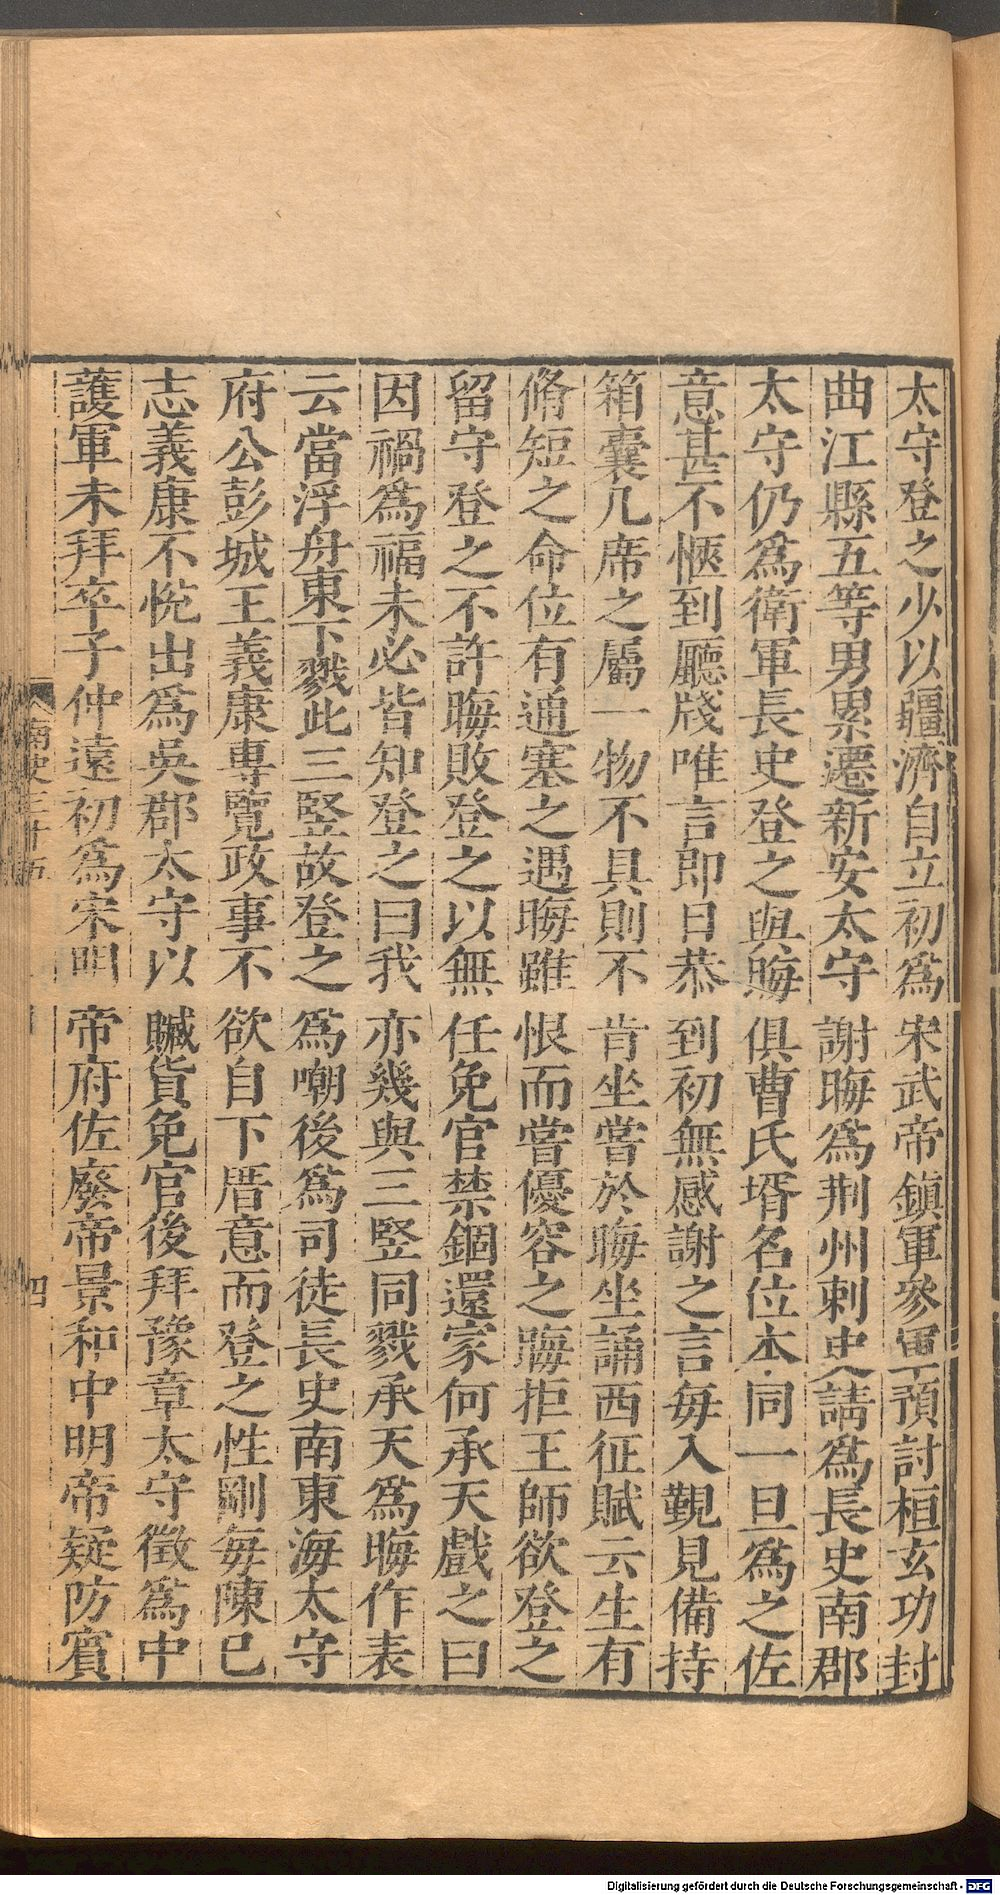 太守登之少以疆濟自立初為宋武帝鎮軍參軍預討桓玄功封
曲江縣五等男累遷新安太守謝晦為荆州刺史請為長史南郡
太守仍為衛軍長史登之與晦俱曹氏壻名位本同一旦為之佐
意甚不愜到廳牋唯言即日恭到初無感謝之言每入覲見備持
箱囊几席之屬一物不具則不肯坐嘗於晦坐誦西征賦云生有
脩短之命位有通塞之遇晦雖恨而嘗優容之晦拒王師欲登之
留守登之不許晦敗登之以無任免官禁錮還家何承天戲之曰
因禍為福未必皆知登之曰我亦幾與三竪同戮承天為晦作表
云當浮舟東下戮此三竪故登之為嘲後為司徒長史南東海太守
府公彭城王義康專覽政事不欲自下厝意而登之性剛每陳已
志義康不悅出為吳郡太守以贓貨免官後拜豫章太守徵為中
護軍未拜卒子仲遠初為宋明帝府佐廢帝景和中明帝疑防賓
南史三十五
四
Digitalisierung gefördert durch die Deutsche Forschungsgemeinschaft - DFG